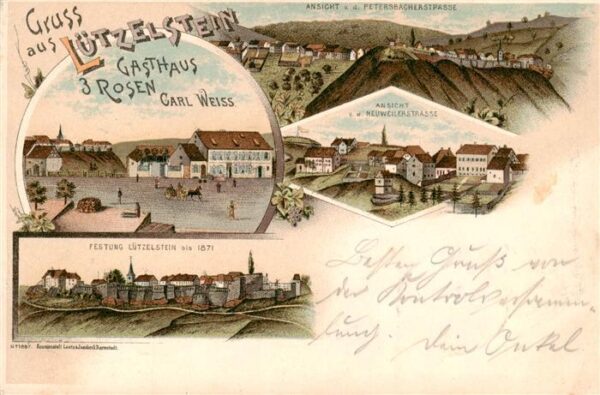 Gruss
aus LÜTZELSTEIN
GASTHAUS
3 ROSEN
CARL WEISS
ANSICHT v. d. PETERSBACHERSTRASSE
ANSICHT
v. d. NEUWEILERSTRASSE
FESTUNG LÜTZELSTEIN bis 1871
Kunstanstalt Lautz & Darmstadt
Besten Gruß von
der Kontrolversamm-
lung. Dein Onkel.